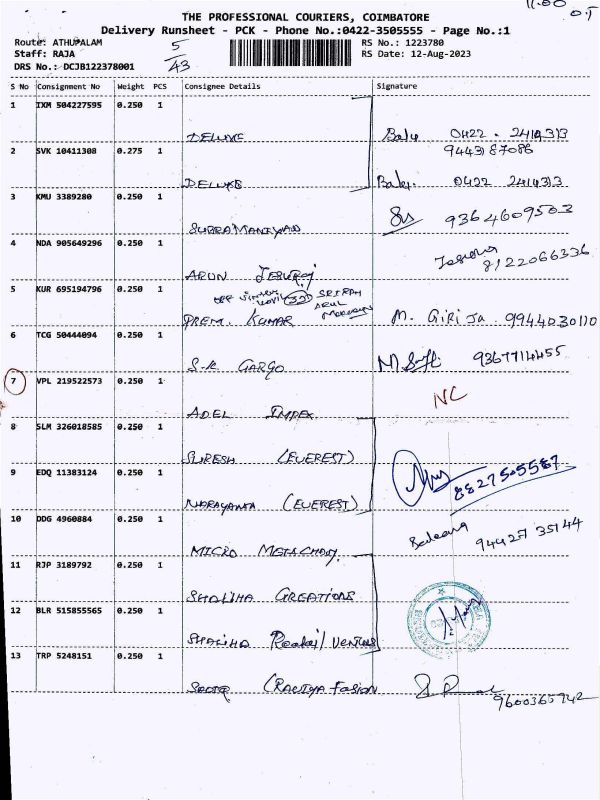 11.00
0.5
THE PROFESSIONAL COURIERS, COIMBATORE
Delivery Runsheet - PCK - Phone No.:0422-3505555 - Page No.:1
Route: ATHUPALAM 5 RS No.: 1223780
Staff: RAJA 43 RS Date: 12-Aug-2023
DRS No.: DCJB122378001
S No Consignment No Weight PCS Consignee Details Signature
1 IXM 504227595 0.250 1
DELUXE Balu 0422 - 2414313
9443187086
2 SVK 10411308 0.275 1
DELUXE Balu. 0422 2414313
3 KMU 3389280 0.250 1
SUBRAMANIYAN 9364609503
4 NDA 905649296 0.250 1
ARUN JESURAJ 8122066336
5 KUR 695194796 0.250 1
SRIRAM
ARUL
PREM. KUMAR M. GIRIJA 9944030110
6 TCG 50444094 0.250 1
S.K. CARGO 9367714455
7 VPL 219522573 0.250 1
ADEL IMPEX NC
8 SLM 326018585 0.250 1
SURESH (EVEREST)
9 EDQ 11383124 0.250 1
NARAYANA (EVEREST) 8827505587
10 DDG 4960884 0.250 1
MICRO 94427 35144
11 RJP 3189792 0.250 1
SHALIHA CREATIONS
12 BLR 515855565 0.250 1
SHALIHA Reatail Ventures
13 TRP 5248151 0.250 1
(RANIYA Fasion 9600365942